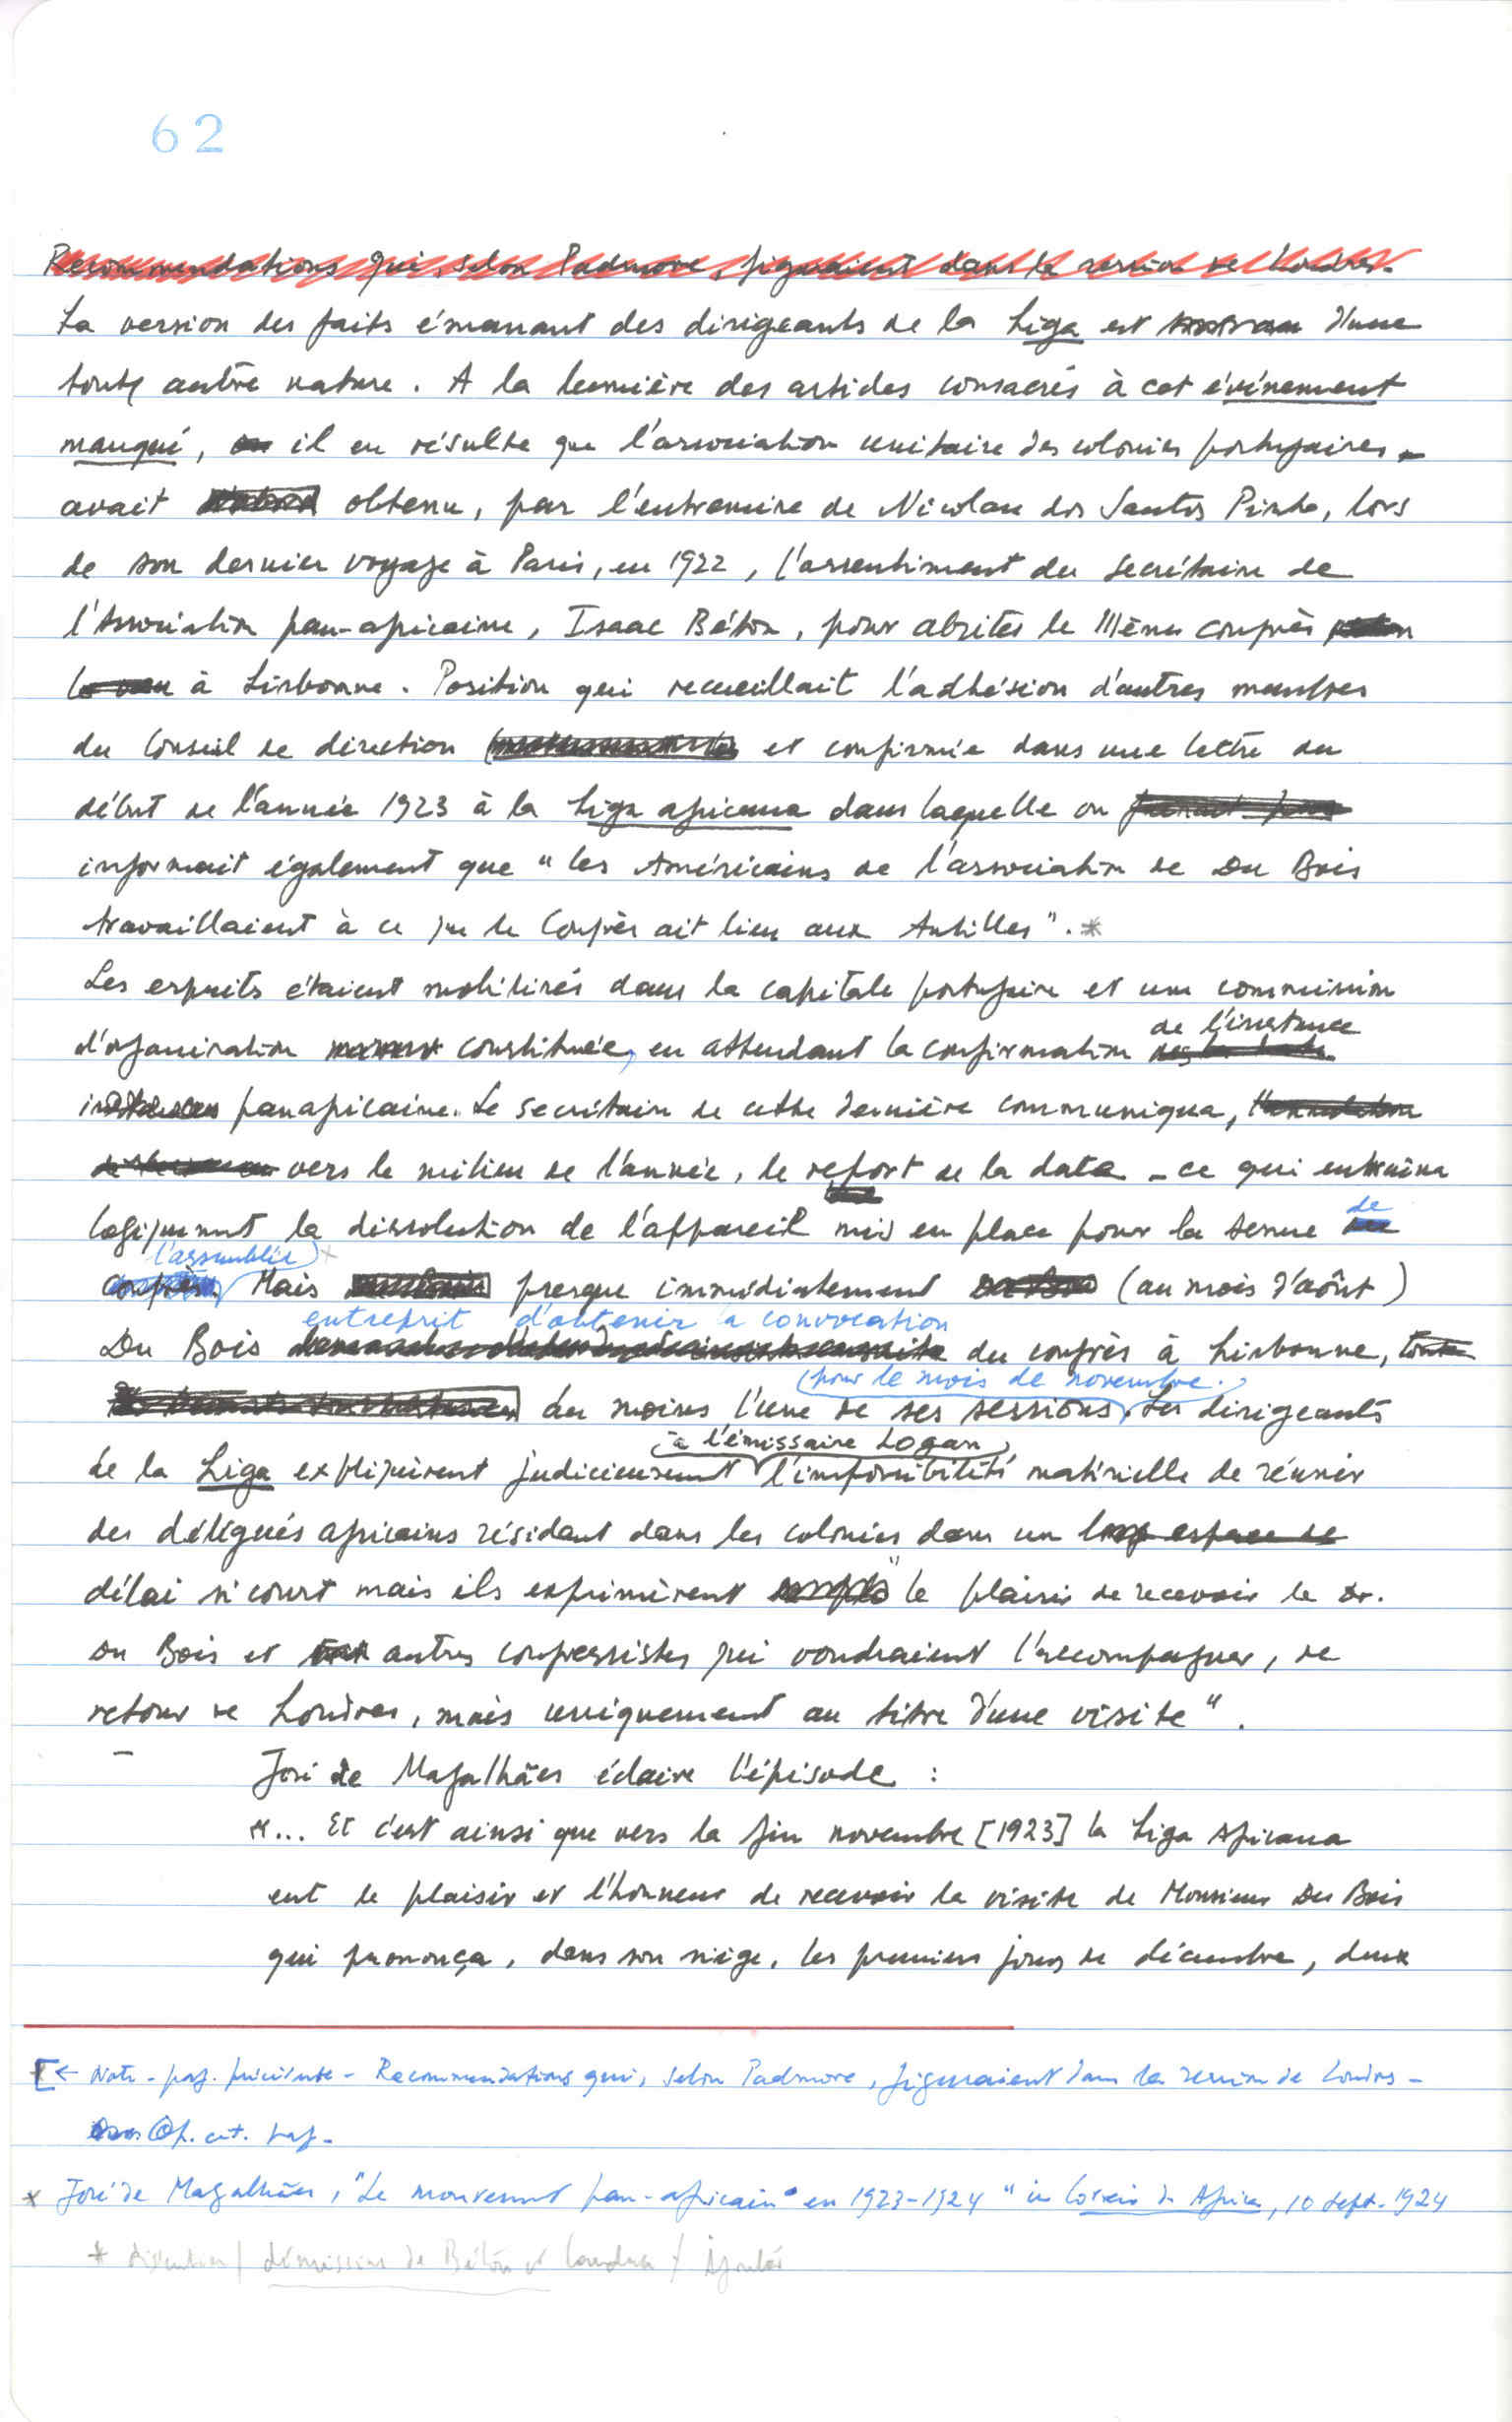 62
Recommendations qui, selon Padmore, figuraient dans la session de Londres.
La version des faits émanant des dirigeants de la Liga est d'une
toute autre nature. A la lumière des articles consacrés à cet événement
manqué, il en résulte que l'association unitaire des colonies portugaises
avait obtenu, par l'entremise de Nicolau dos Santos Pinto, lors
de son dernier voyage à Paris, en 1922, l'assentiment du Secrétaire de
l'Association pan-africaine, Isaac Béton, pour abriter le IIIème congrès
à Lisbonne. Position qui recueillait l'adhésion d'autres membres
du Conseil de direction et confirmée dans une lettre du
début de l'année 1923 à la Liga africana dans laquelle on
informait également que "les Américains de l'association de Du Bois
travaillaient à ce que le Congrès ait lieu aux Antilles". *
Les esprits étaient mobilisés dans la capitale portugaise et une commission
d'organisation constituée, en attendant la confirmation de l'instance
panafricaine. Le secrétaire de cette dernière communiqua,
vers le milieu de l'année, le report de la date - ce qui entraîna
logiquement la dissolution de l'appareil mis en place pour la tenue de
l'assemblée Mais presque immédiatement (au mois d'août)
Du Bois entreprit d'obtenir la convocation du congrès à Lisbonne,
du moins l'une de ses sessions, pour le mois de novembre. Les dirigeants
de la Liga expliquèrent judicieusement à l'émissaire Logan l'impossibilité matérielle de réunir
des délégués africains résidant dans les colonies dans un
délai si court mais ils exprimèrent "le plaisir de recevoir le Dr.
Du Bois et autres congressistes qui voudraient l'accompagner, de
retour de Londres, mais uniquement au titre d'une visite".
José de Magalhães éclaire l'épisode :
"... Et c'est ainsi que vers la fin novembre [1923] la Liga Africana
eut le plaisir et l'honneur de recevoir la visite de Monsieur Du Bois
qui prononça, dans son siège, les premiers jours de décembre, deux
[← Note - pag. précédente - Recommendations qui, selon Padmore, figuraient dans la session de Londres -
Op. cit. pag.
* José de Magalhães, "Le mouvement pan-africain en 1923-1924" in Correio de Africa, 10 Sept. 1924
* démission de Béton et Candace / Ajouter